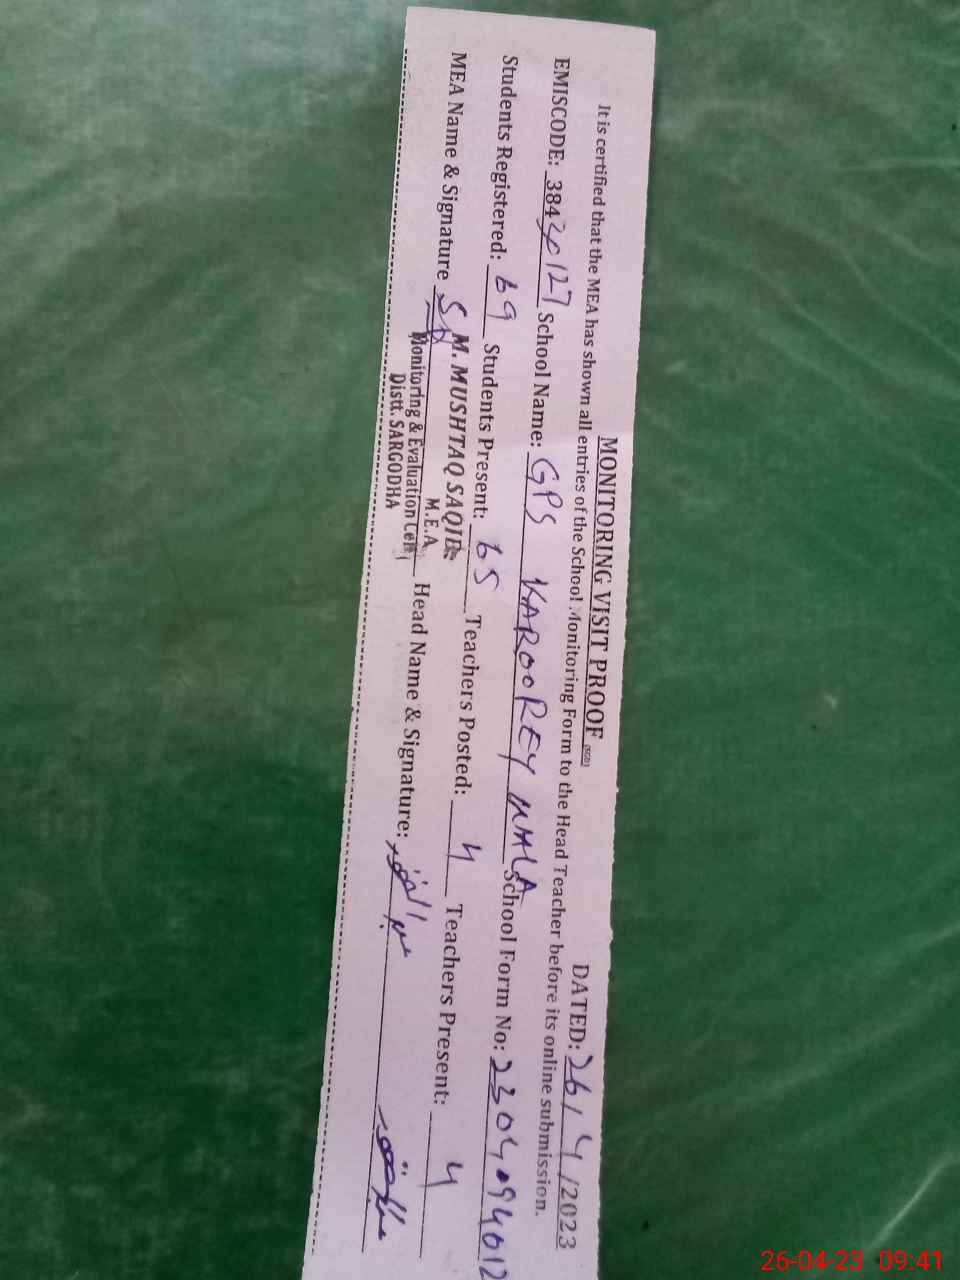 MONITORING VISIT PROOF
DATED: 26/4/2023
It is certified that the MEA has shown all entries of the School Monitoring Form to the Head Teacher before its online submission.
EMISCODE: 384 127 School Name: GPS KAROOREY WALA School Form No: 2304094012
Students Registered: 69 Students Present: 65 Teachers Posted: 4 Teachers Present: 4
MEA Name & Signature Head Name & Signature:
M. MUSHTAQ SAQIB
M.E.A
Monitoring & Evaluation Cell
Distt. SARGODHA
26-04-23 09:41